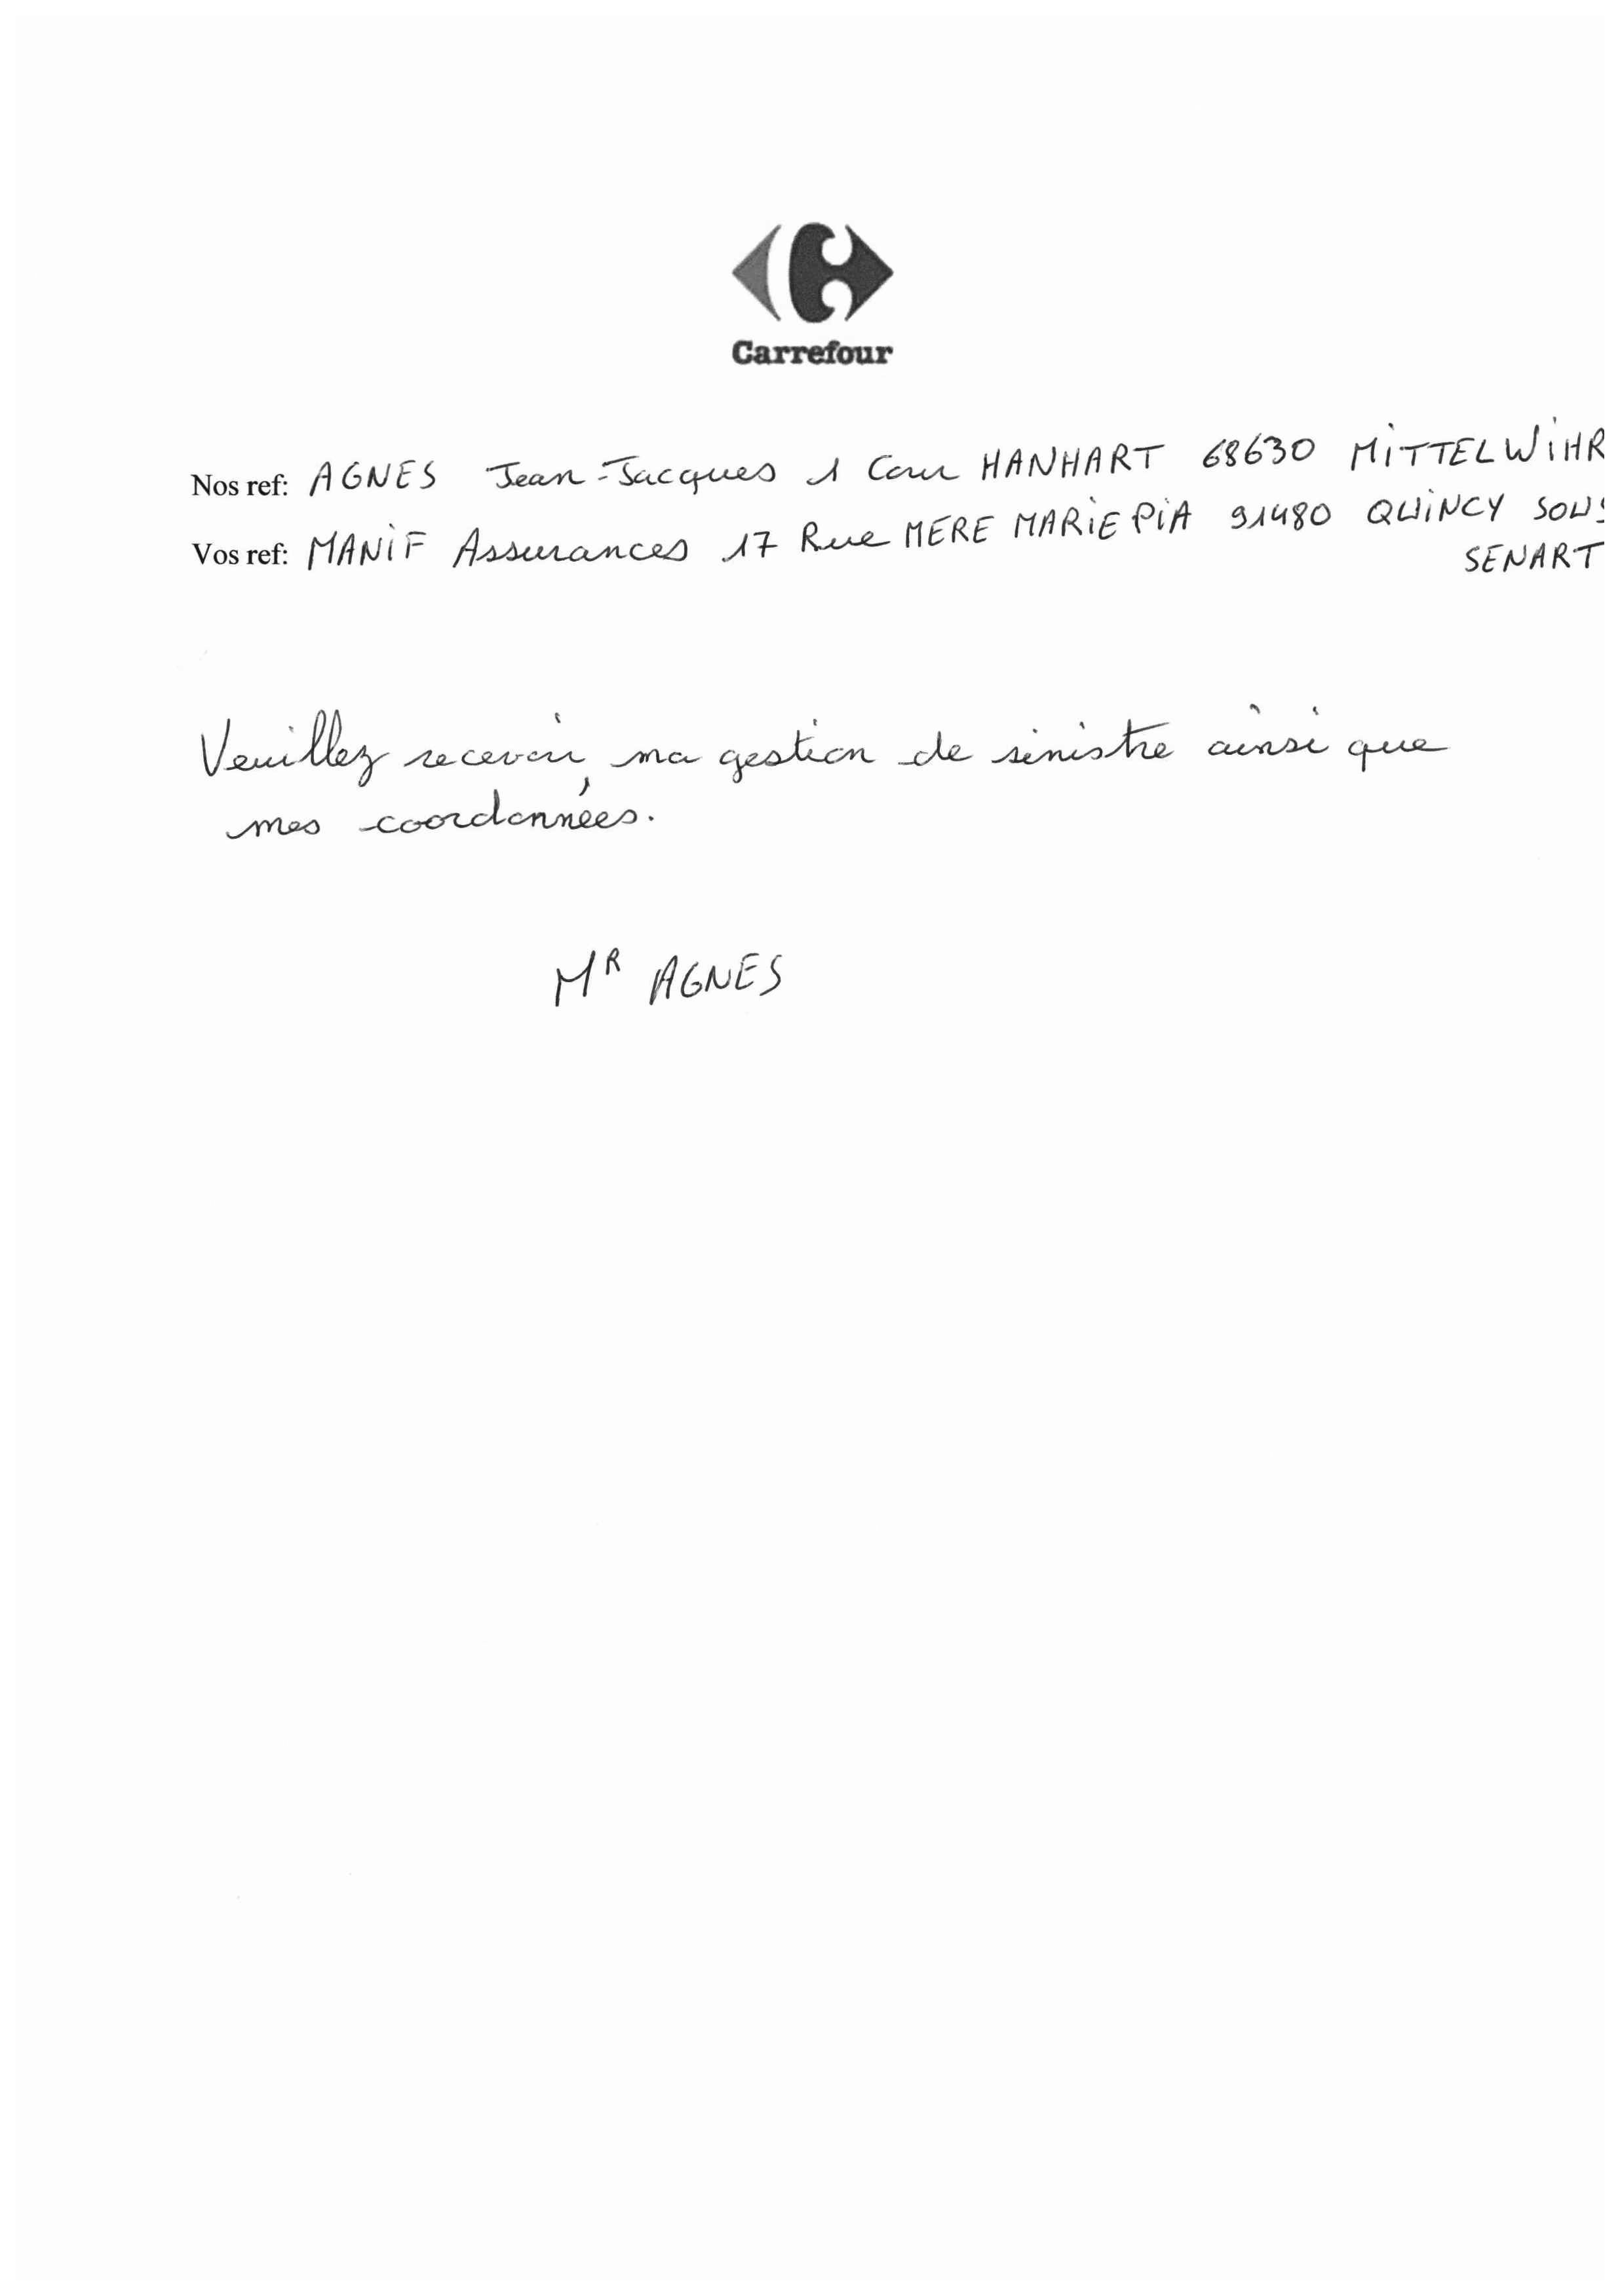 Carrefour
Nos ref: AGNES Jean-Jacques 1 Cour HANHART 68630 MITTELWIHR
Vos ref: MANIF Assurances 17 Rue MERE MARIE PIA 91480 QUINCY SOUS
SENART
Veuillez recevoir, ma gestion de sinistre ainsi que
mes coordonnées.
MR AGNES